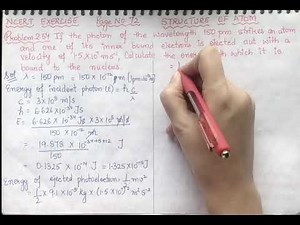 NCERT EXERCISE Page No 72 STRUCTURE OF ATOM
Problem 2.54 If the photon of the wavelength 150 pm strikes an atom
and one of its inner bound electrons is ejected out with a
velocity of 1.5×10⁷ ms⁻¹, Calculate the energy with which it is
bound to the nucleus.
Sol λ = 150 pm = 150 × 10⁻¹² m
Energy of incident photon (E) = h c/λ
c = 3 × 10⁸ m/s
h = 6.626 × 10⁻³⁴ Js
E = 6.626 × 10⁻³⁴ Js × 3 × 10⁸ m/s
150 × 10⁻¹² m
= 19.878 × 10⁻³⁴⁺⁸⁺¹² J
150
= 0.1325 × 10⁻¹⁴ J = 1.325 × 10⁻¹⁵ J
Energy of ejected photoelectron = ½ mv²
= ½ × 9.1 × 10⁻³¹ kg × (1.5 × 10⁷)² m² s⁻²
=